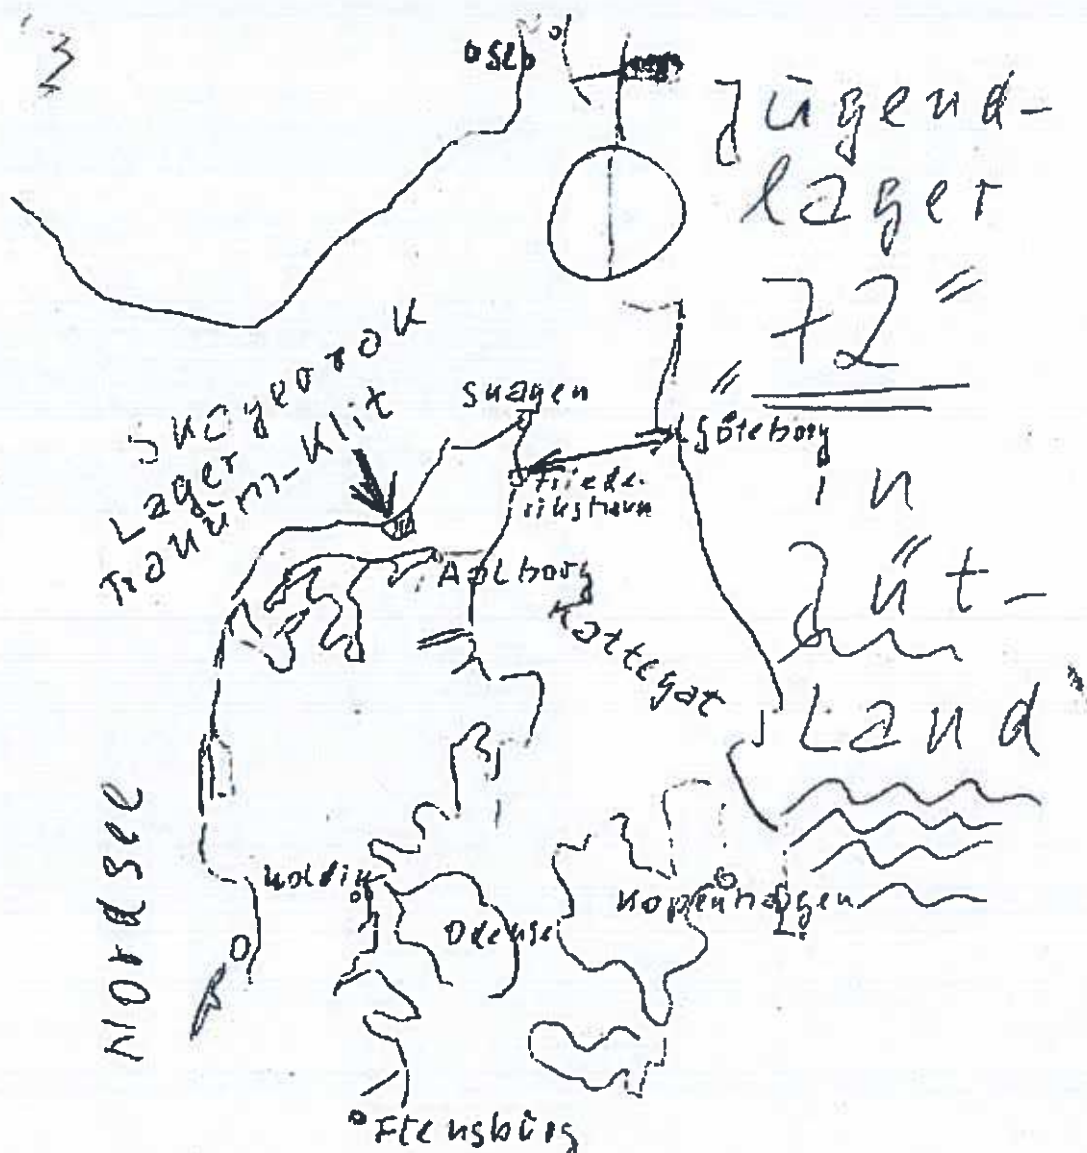 3
Oslo
Jugend-
lager
72"
Skagerrak
Lager
Tranum-Klit
Skagen
"Göteborg
Friede-
rikshavn
in
Jüt-
Land"
Aalborg
Kattegat
Nordsee
Koldin
Odense
Kopenhagen
Flensburg